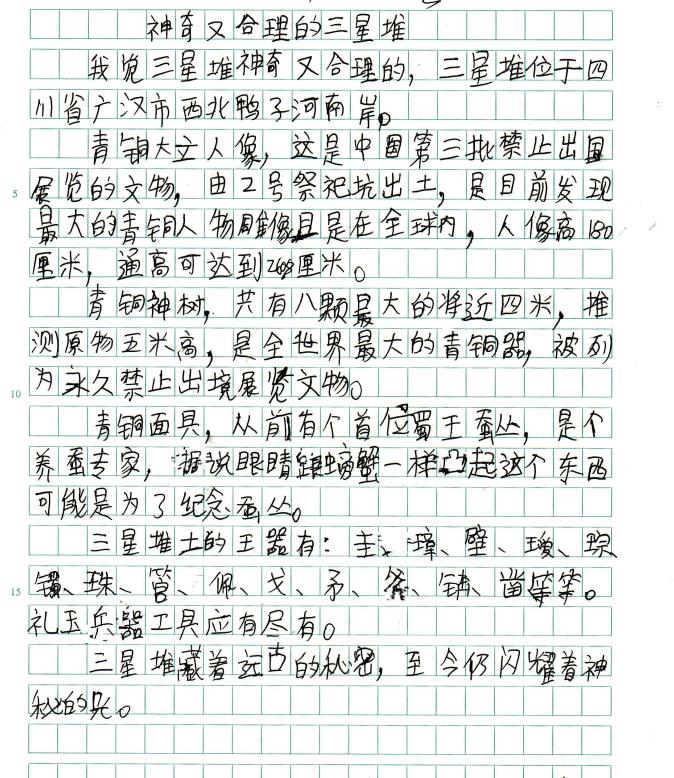 神奇又合理的三星堆
我觉三星堆神奇又合理的，三星堆位于四
川省广汉市西北鸭子河南岸。
青铜大立人像，这是中国第三批禁止出国
展览的文物，由2号祭祀坑出土，是目前发现
最大的青铜人物雕像且是在全球内，人像高180
厘米，通高可达到268厘米。
青铜神树，共有八颗最大的将近四米，推
测原物五米高，是全世界最大的青铜器，被列
为永久禁止出境展览文物。
青铜面具，从前有个首位蜀王蚕丛，是个
养蚕专家，据说眼睛跟螃蟹一样凸起这个东西
可能是为了纪念蚕丛。
三星堆土的王器有：圭、璋、壁、瑷、琮
、珠、管、佩、戈、矛、斧、锛、凿等等。
礼玉兵器工具应有尽有。
三星堆藏着远古的秘密，至今仍闪耀着神
秘的光。
5
10
15